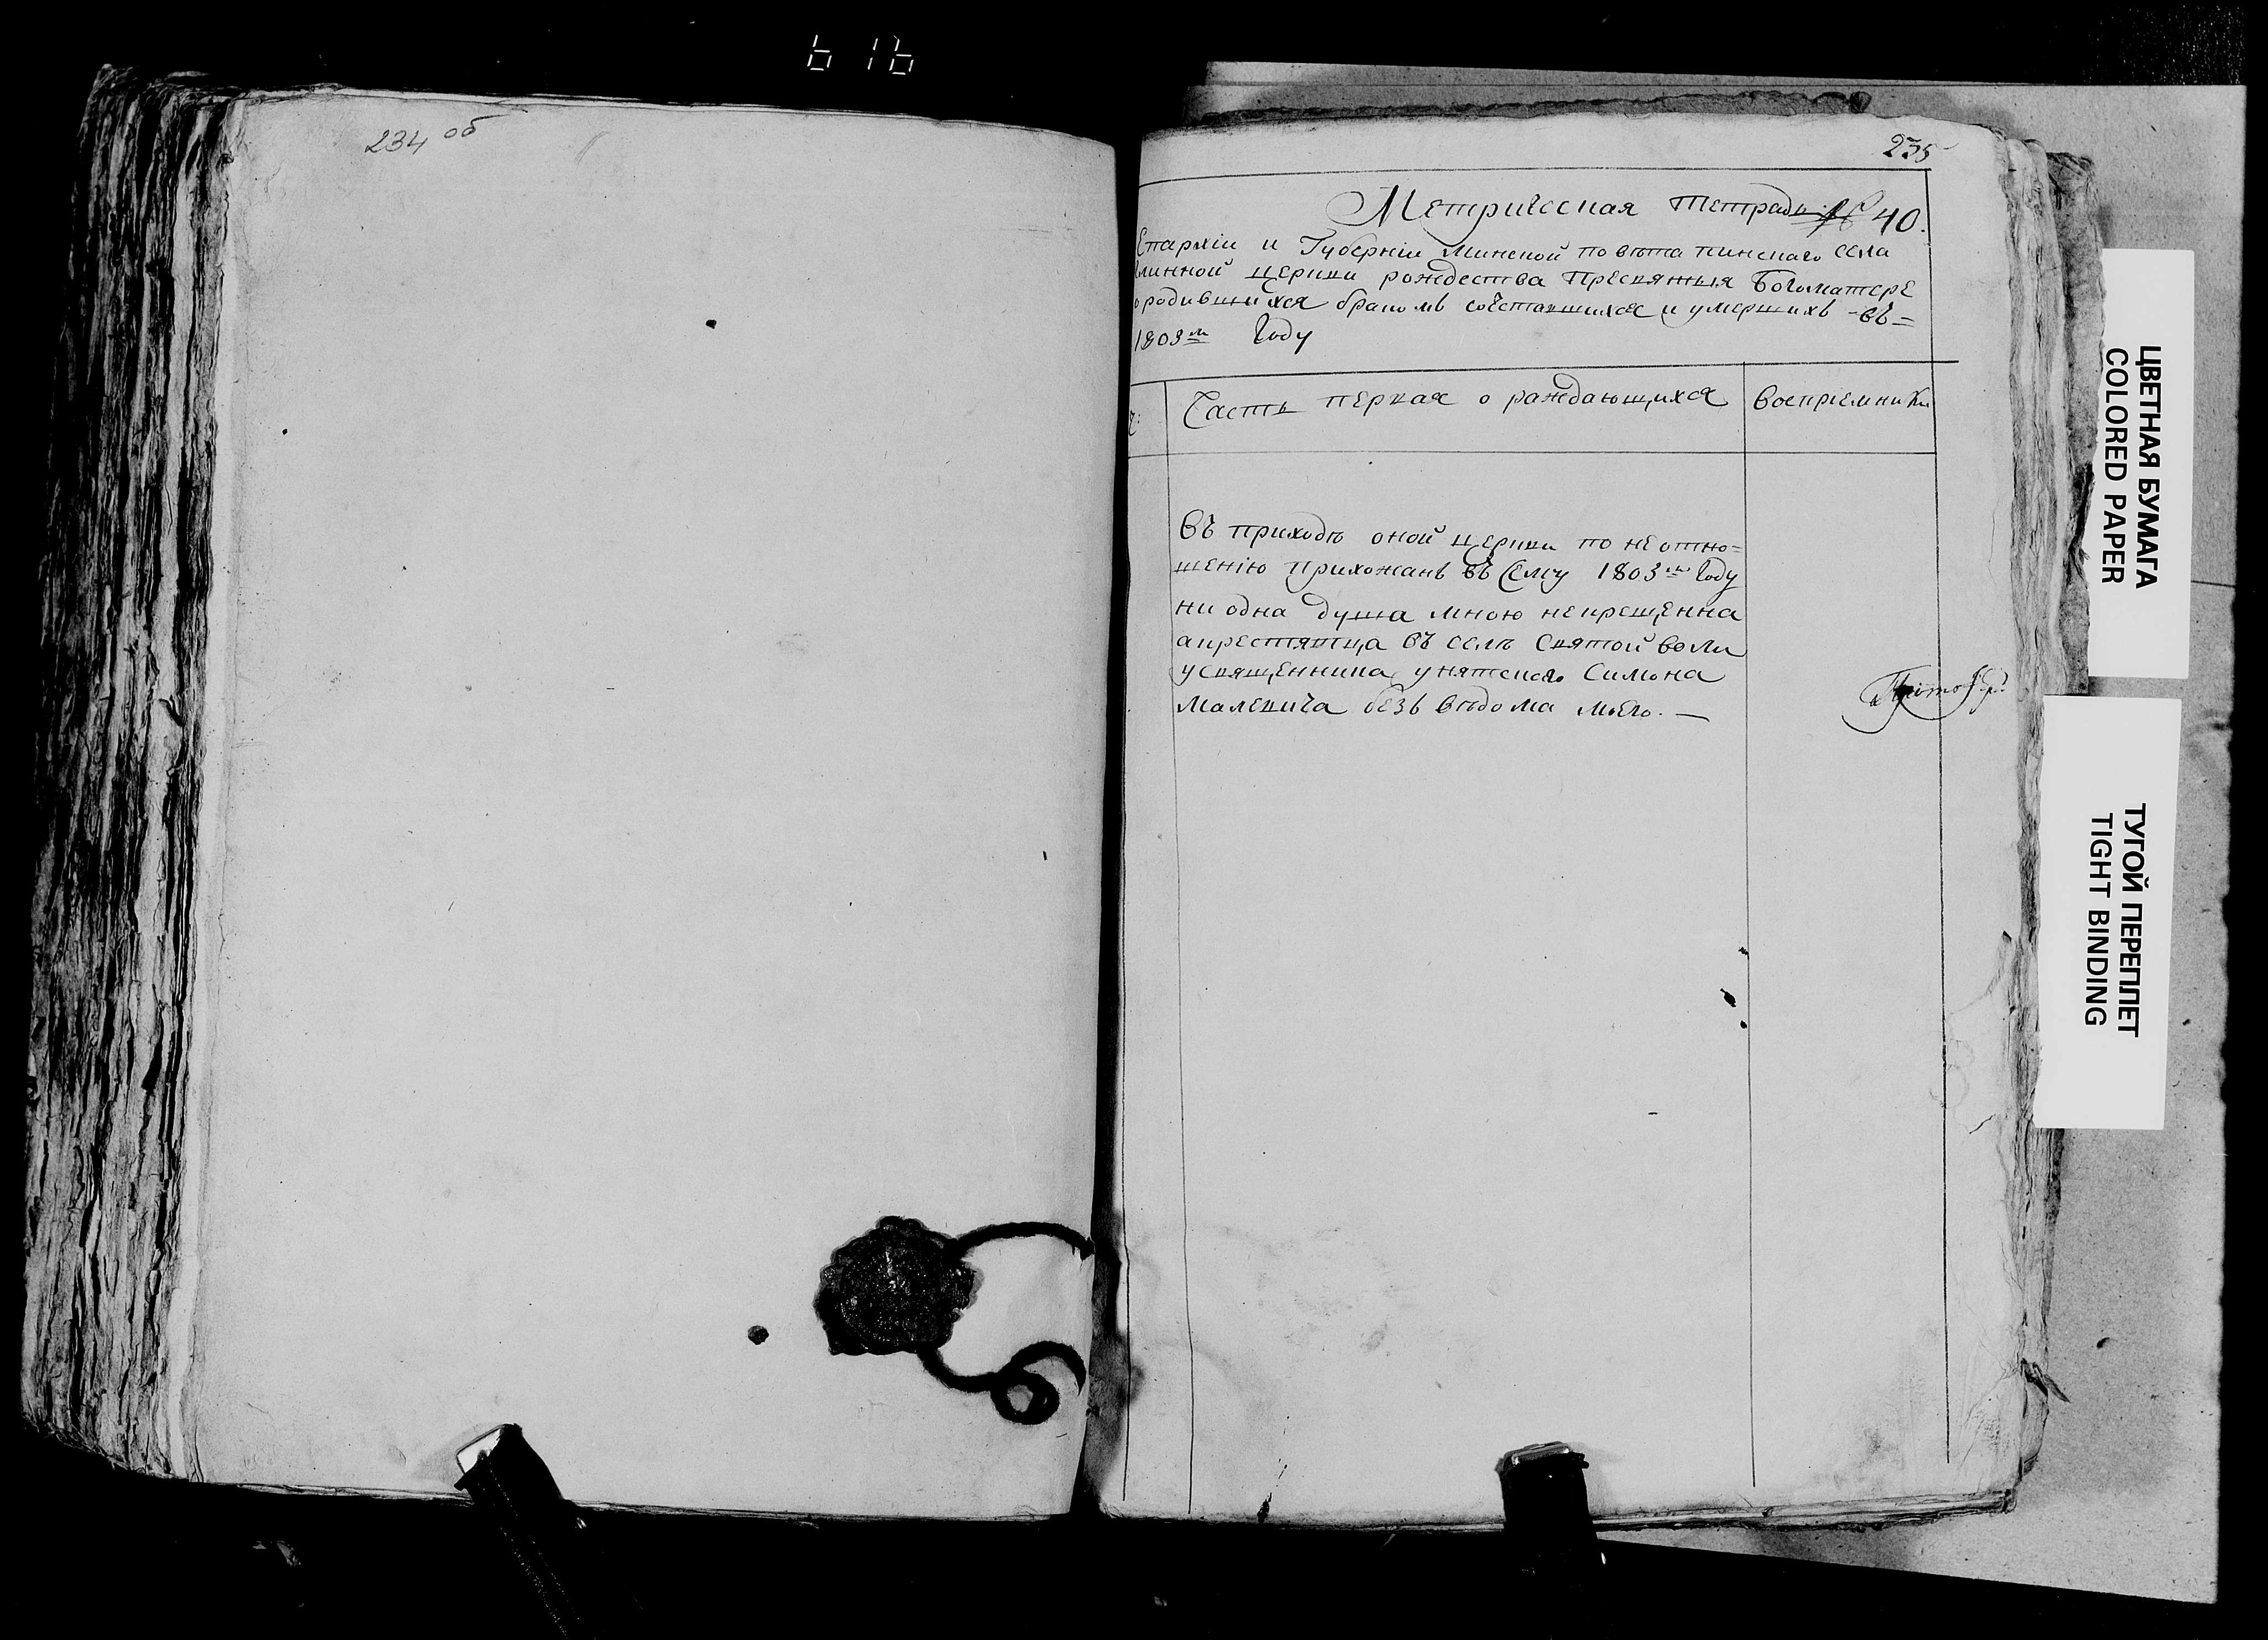 234 об
235
Метрическая тетрадь № 40.
Епархіи и Губерніи Минской повѣта пинскаго села
церкви рождества Пресвятыя Богоматере
о родившихся бракомъ сочетавшихся и умершихъ въ=
1803м Году
Часть первая о раждающихся
воспріемники
Въ приходѣ оной церкви по неотно=
шенію прихожанъ въ Сему 1803м Году
ни одна душа мною некрещенна
акрестятца въ селѣ Святой воли
у священника унятскаго Симона
Малевича безъ вѣдома моего. —
ЦВЕТНАЯ БУМАГА
COLORED PAPER
ТУГОЙ ПЕРЕПЛЕТ
TIGHT BINDING